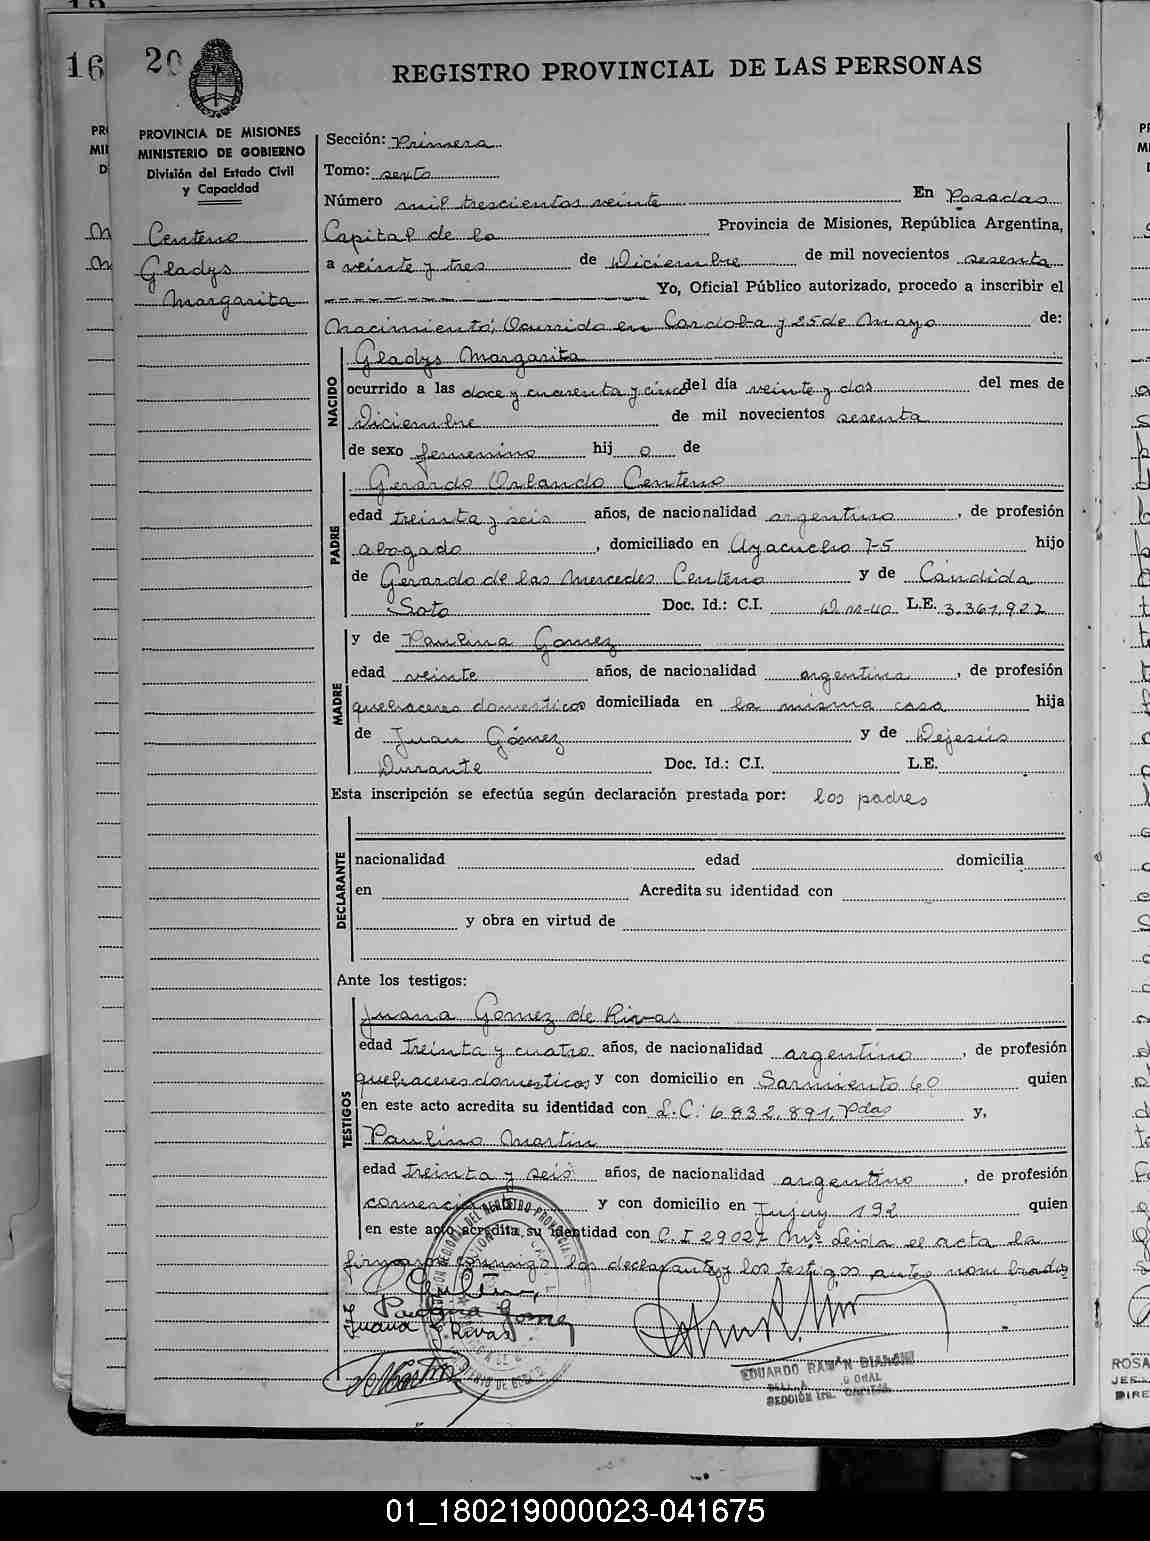 16 20
REGISTRO PROVINCIAL DE LAS PERSONAS
PROVINCIA DE MISIONES
MINISTERIO DE GOBIERNO
División del Estado Civil
y Capacidad
Centeno
Gladys
Margarita
Sección: Primera
Tomo: sexto
Número mil trescientos veinte En Posadas
Capital de la Provincia de Misiones, República Argentina,
a veinte y tres de Diciembre de mil novecientos sesenta
Yo, Oficial Público autorizado, procedo a inscribir el
Nacimiento, Ocurrido en Cordoba y 25 de Mayo de:
NACIDO
Gladys Margarita
ocurrido a las doce y cuarenta y cinco del día veinte y dos del mes de
Diciembre de mil novecientos sesenta
de sexo femenino hij o de
PADRE
Gerardo Orlando Centeno
edad treinta y seis años, de nacionalidad argentino, de profesión
abogado, domiciliado en Ayacucho 75 hijo
de Gerardo de las Mercedes Centeno y de Cándida
Soto Doc. Id.: C.I. L.E. 3.361.927
MADRE
y de Paulina Gomez
edad veinte años, de nacionalidad argentina, de profesión
quehaceres domesticos domiciliada en la misma casa hija
de Juan Gómez y de Dejesús
Durante Doc. Id.: C.I. L.E.
Esta inscripción se efectúa según declaración prestada por: los padres
DECLARANTE
nacionalidad edad domicilia
en Acredita su identidad con
y obra en virtud de
Ante los testigos:
TESTIGOS
Juana Gomez de Rivas
edad treinta y cuatro años, de nacionalidad argentino, de profesión
quehaceres domesticos y con domicilio en Sarmiento 60 quien
en este acto acredita su identidad con L.C. 6832.891, Pdas y,
Paulino Martin
edad treinta y seis años, de nacionalidad argentino, de profesión
comercio y con domicilio en Jujuy 192 quien
en este acto acredita su identidad con C.I 29027 Mns Leida el acta la
firmaron conmigo los declarantes y los testigos antes nombrados
Paulina Gomez
Juana G. Rivas
EDUARDO RAMÓN BIANCHI
SECCIÓN 1ra. CAPITAL
01_180219000023-041675